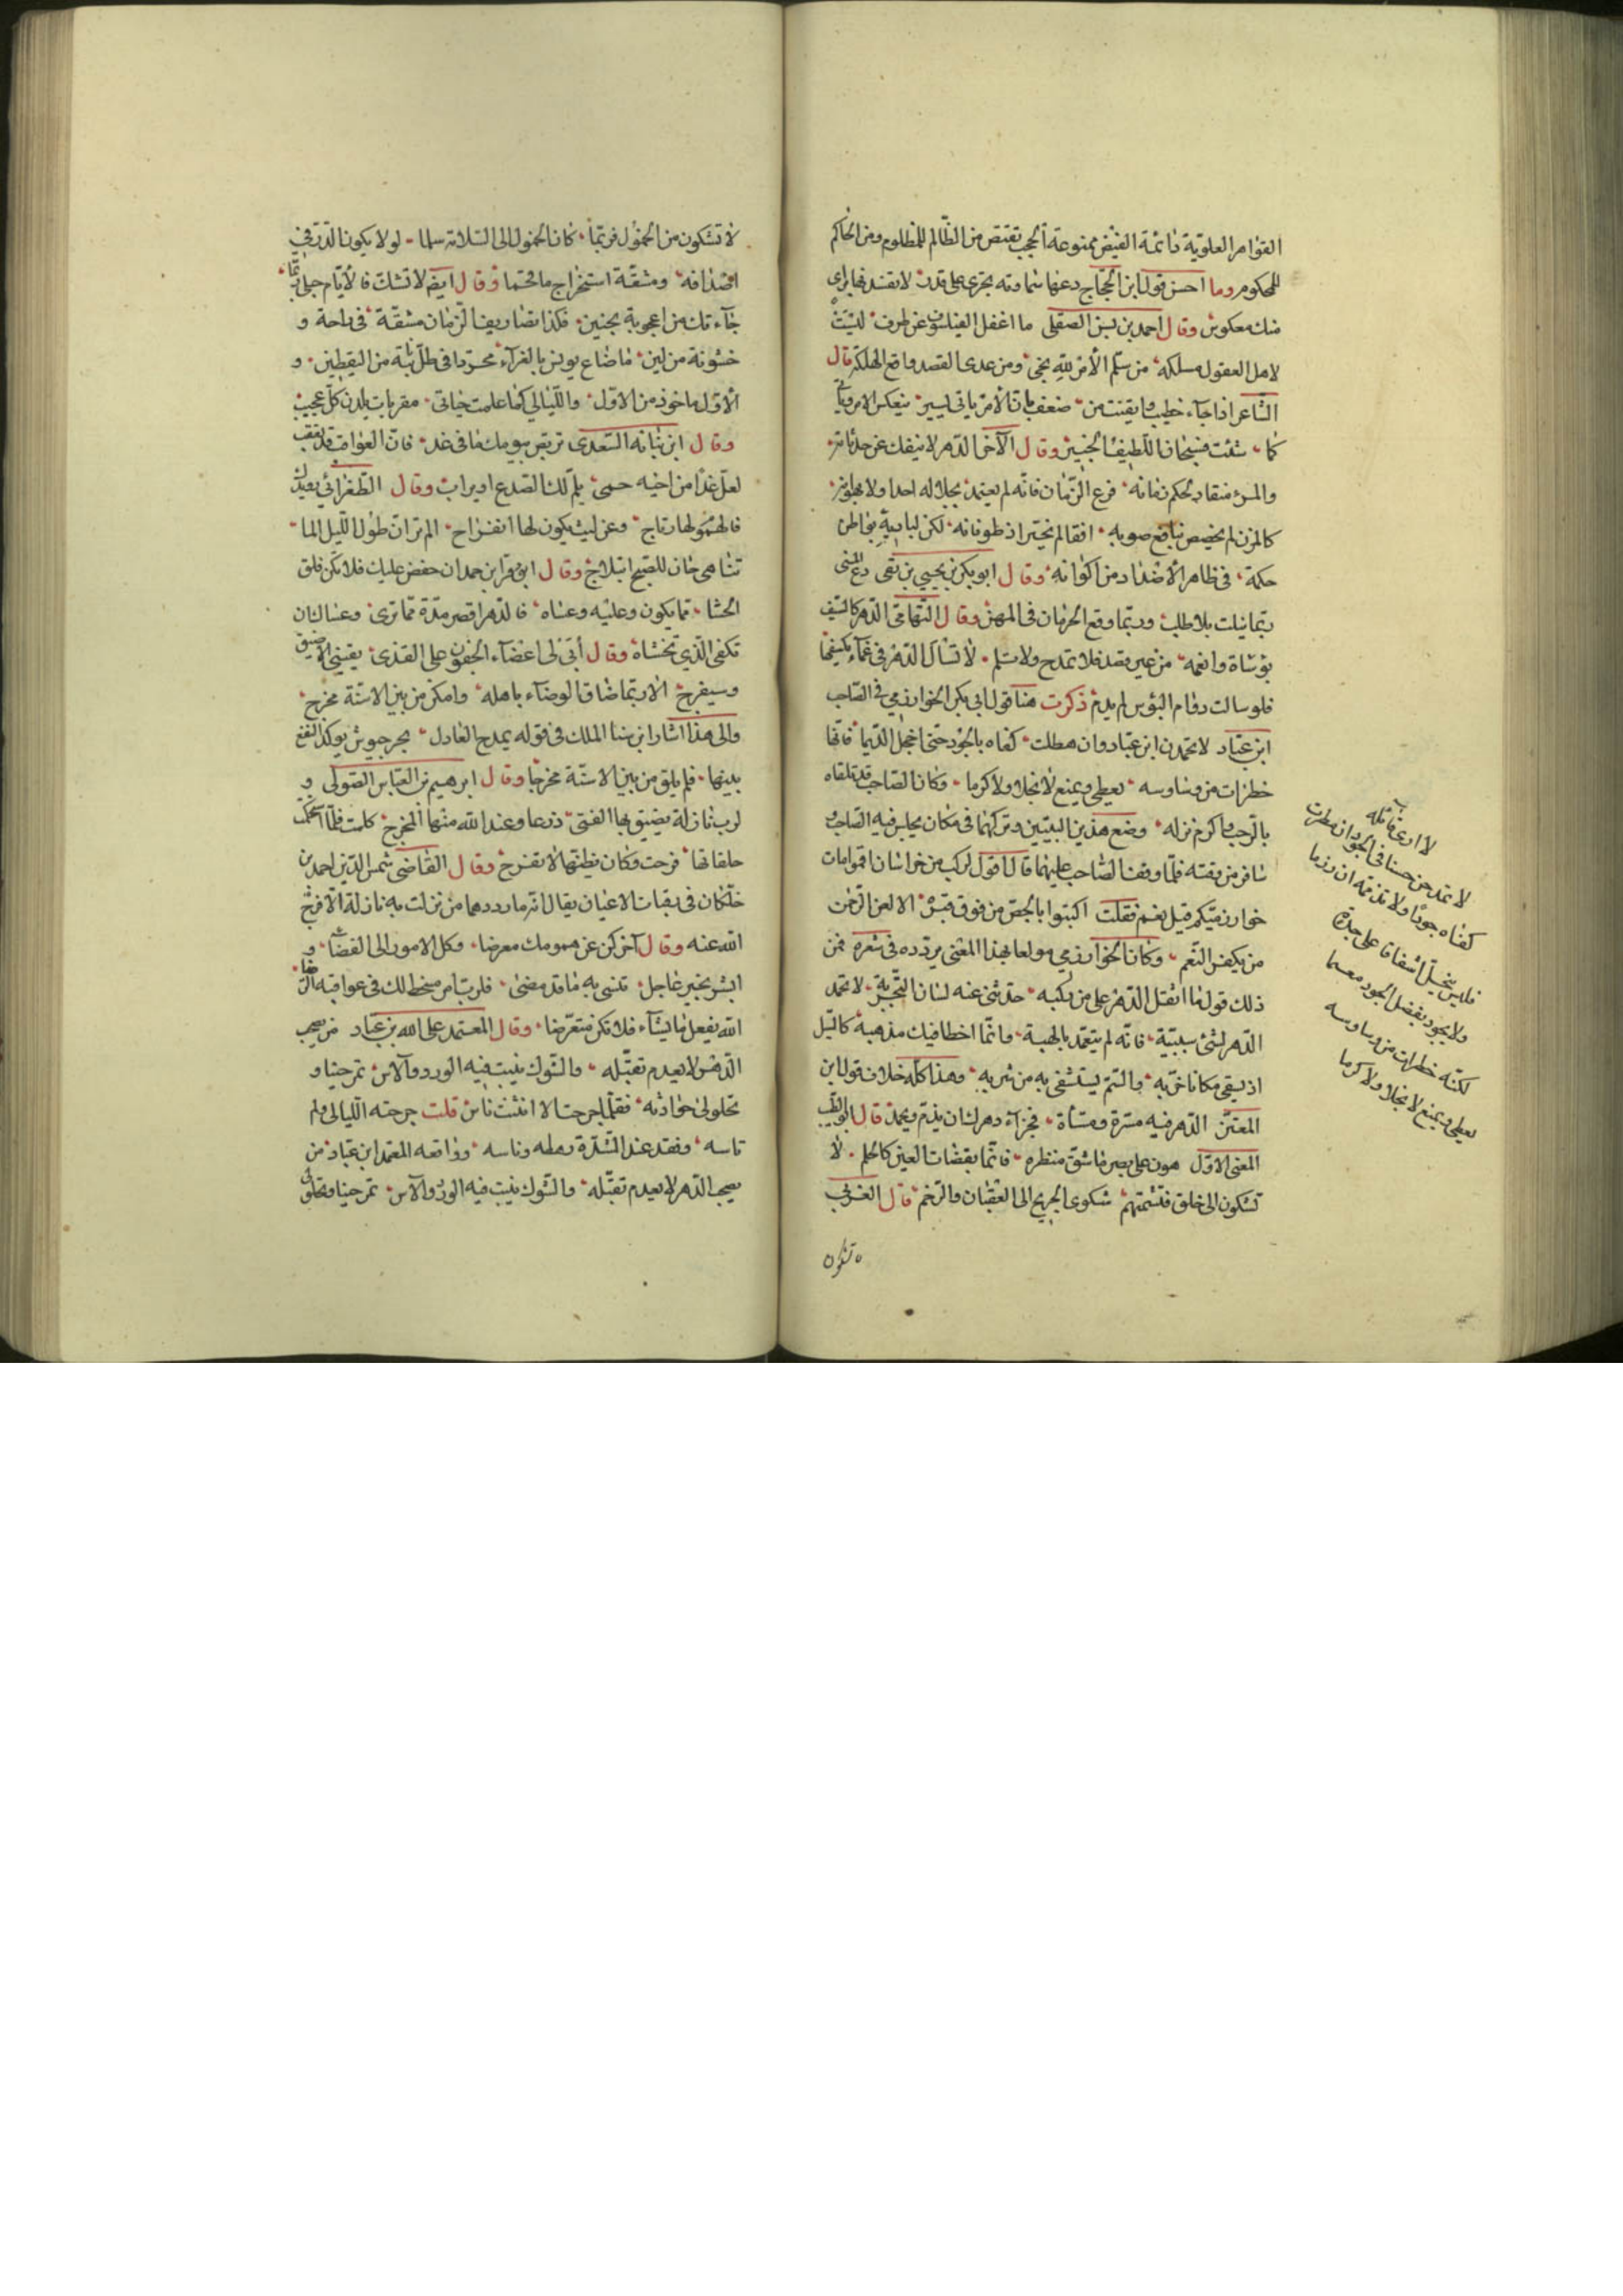 القوامر العلوية دائمة الفيض ممنوعة الحجب تقتص من الظالم للمظلوم ومن الحاكم
للمحكوم وما احسن قول ابن الحجاج دعها سماوية تجري على قدر لا تفسدنها براي
منك معكوس وقال احمد بن الصقلي ما اغفل الفيلسوف عن طرف ليست
لاهل العقول مسلكه من سلم الأمر لله نجى ومن عدى القصد واقع الهلكة قال
الشاعر اذا جاء خطب وايقنت من ضعف بان الأمر ياتي ليسير ينعكس الامر وياتي
كما شئت فسبحان اللطيف الخبير وقال الآخر الدهر لا ينفك عن حدثانه
والمرء منقاد لحكم زمانه فدع الزمان فانه لم يعتمد بجلاله احدا ولا بهوانه
كالمزن لم يخصص بنافع صوبه افقا لم يختر اذ طوفانه لكن لباريه بواطن
حكمة في ظاهر الأضداد من اكوانه وقال ابو بكر بن يحيى بن بقى دع المنى
ربما نيلت بلا طلب وربما وقع الحرمان في المهن وقال التهامي الدهر كالسيف
بؤساه وانعمه من غير قصد فلا تمدح ولا تلم لا تسأل الدهر في غماء يكشفها
فلو سالت دوام البؤس لم يدم ذكرت هنا قول ابي بكر الخوارزمي في الصاحب
ابن عباد لا تحمدن ابن عباد وان هطلت كفاه بالجود حتى اخجل الديما فانها
خطرات من وساوسه يعطي ويمنع لا بخلا ولا كرما وكان الصاحب قد تلقاه
بالرحب واكرم نزله وضع هذين البيتين وتركهما في مكان يجلس فيه الصاحب و
سافر من وقته فلما وقف الصاحب عليهما قال اقول لركب من خراسان اقبلوا امات
خوارزميكم قيل نعم فقلت اكتبوا بالجص من فوق قبره الا لعن الرحمن
من يكفر النعم وكان الخوارزمي مولعا بهذا المعنى يردده في شعره فمن
ذلك قوله ما اثقل الدهر على من ركبه حدثني عنه لسان التجربة لا تحمد
الدهر لشئ سببه فانه لم يتعمد بالهبة وانما اخطا فيك مذهبه كالسيل
اذ يسقي مكانا خربه والسم يستشفى به من شربه وهذا كله خلاف قول ابن
المعتز الدهر فيه مسرة ومساة فجزاء دهرك ان يذم ويحمد قال ابو الطيب
المعنى الاول هون على بصر ما شق منظره فانما يقظات العين كالحلم لا
تشكون الى خلق فتشمتهم شكوى الجريح الى العقبان والرخم قال الغزي
لا تشكون
لا ادري قائله
لا تمدحن حسنا في الجود ان مطرت
كفاه جودا ولا تذمه ان رزما
فليس يبخل اشفاقا على جدة
ولا يجود بفضل الجود مغتنما
لكنه خطرات من وساوسه
يعطي ويمنع لا بخلا ولا كرما
لا تشكون من الخمول فربما كان الخمول الى السلامة سلما لولا يكون الدر في
اصدافه ومشقة استخراج ما تحتما وقال ايضا لا تشك فالأيام حبلى ربما
جاءتك من اعجوبة بجنين فكذا تصاريف الزمان مشقة في راحة و
خشونة من لين ما ضاع يونس بالعراء مجردا في ظل نبتة من اليقطين و
الأول ماخوذ من الاول والليالي كما علمت حبالى مقربات يلدن كل عجيب
وقال ابن نباته السعدي تربص بيومك ما في غد فان العواقب قد تعقب
لعل غدا من اخيه حمى يلم لك الصدع او يراب وقال الطغرائي رويدك
فالهموم لها رتاج وعن كثب يكون لها انفراج الم تر ان طول الليل لما
تناهى حان للصبح ابتلاج وقال ابو فراس بن حمدان خفض عليك فلا تكن قلق
الحشا مما يكون وعليه وعساه فالدهر اقصر مدة مما ترى وعساك ان
تكفى الذي تخشاه وقال أبى لي اغضاء الجفون على القذى يقيني الا ضيق
وسيفرج الا ربما ضاق الفضاء باهله وامكن من بين الاسنة مخرج
والى هذا اشار ابن سنا الملك في قوله يمدح العادل يجر جيوش يركد النقع
بينها فلم يلق من بين الاسنة مخرجا وقال ابراهيم بن العباس الصولي و
لرب نازلة يضيق بها الفتى ذرعا وعند الله منها المخرج كملت فلما استحكمت
حلقاتها فرجت وكان يظنها لا تفرج وقال القاضي شمس الدين احمد بن
خلكان في وفيات الاعيان يقال انه ما رددهما من نزلت به نازلة الا فرج
الله عنه وقال آخر كن عن همومك معرضا وكل الامور الى القضا و
ابشر بخير عاجل تنسى به ما قد مضى فلرب امر مسخط لك في عواقبه الرضا
الله يفعل ما يشاء فلا تكن متعرضا وقال المعتمد على الله بن عباد من يصحب
الدهر لا يعدم تقبله والشوك ينبت فيه الورد والآس تمر حينا و
تحلو لي حوادثه فقلما جرحت الا انثنت تاسو قلت جرحته الليالي ولم
تاسه وفقد عند الشدة رهطه وناسه وواقعة المعتمد ابن عباد من
يصحب الدهر لا يعدم تقبله والشوك ينبت فيه الورد والآس تمر حينا وتحلو لي